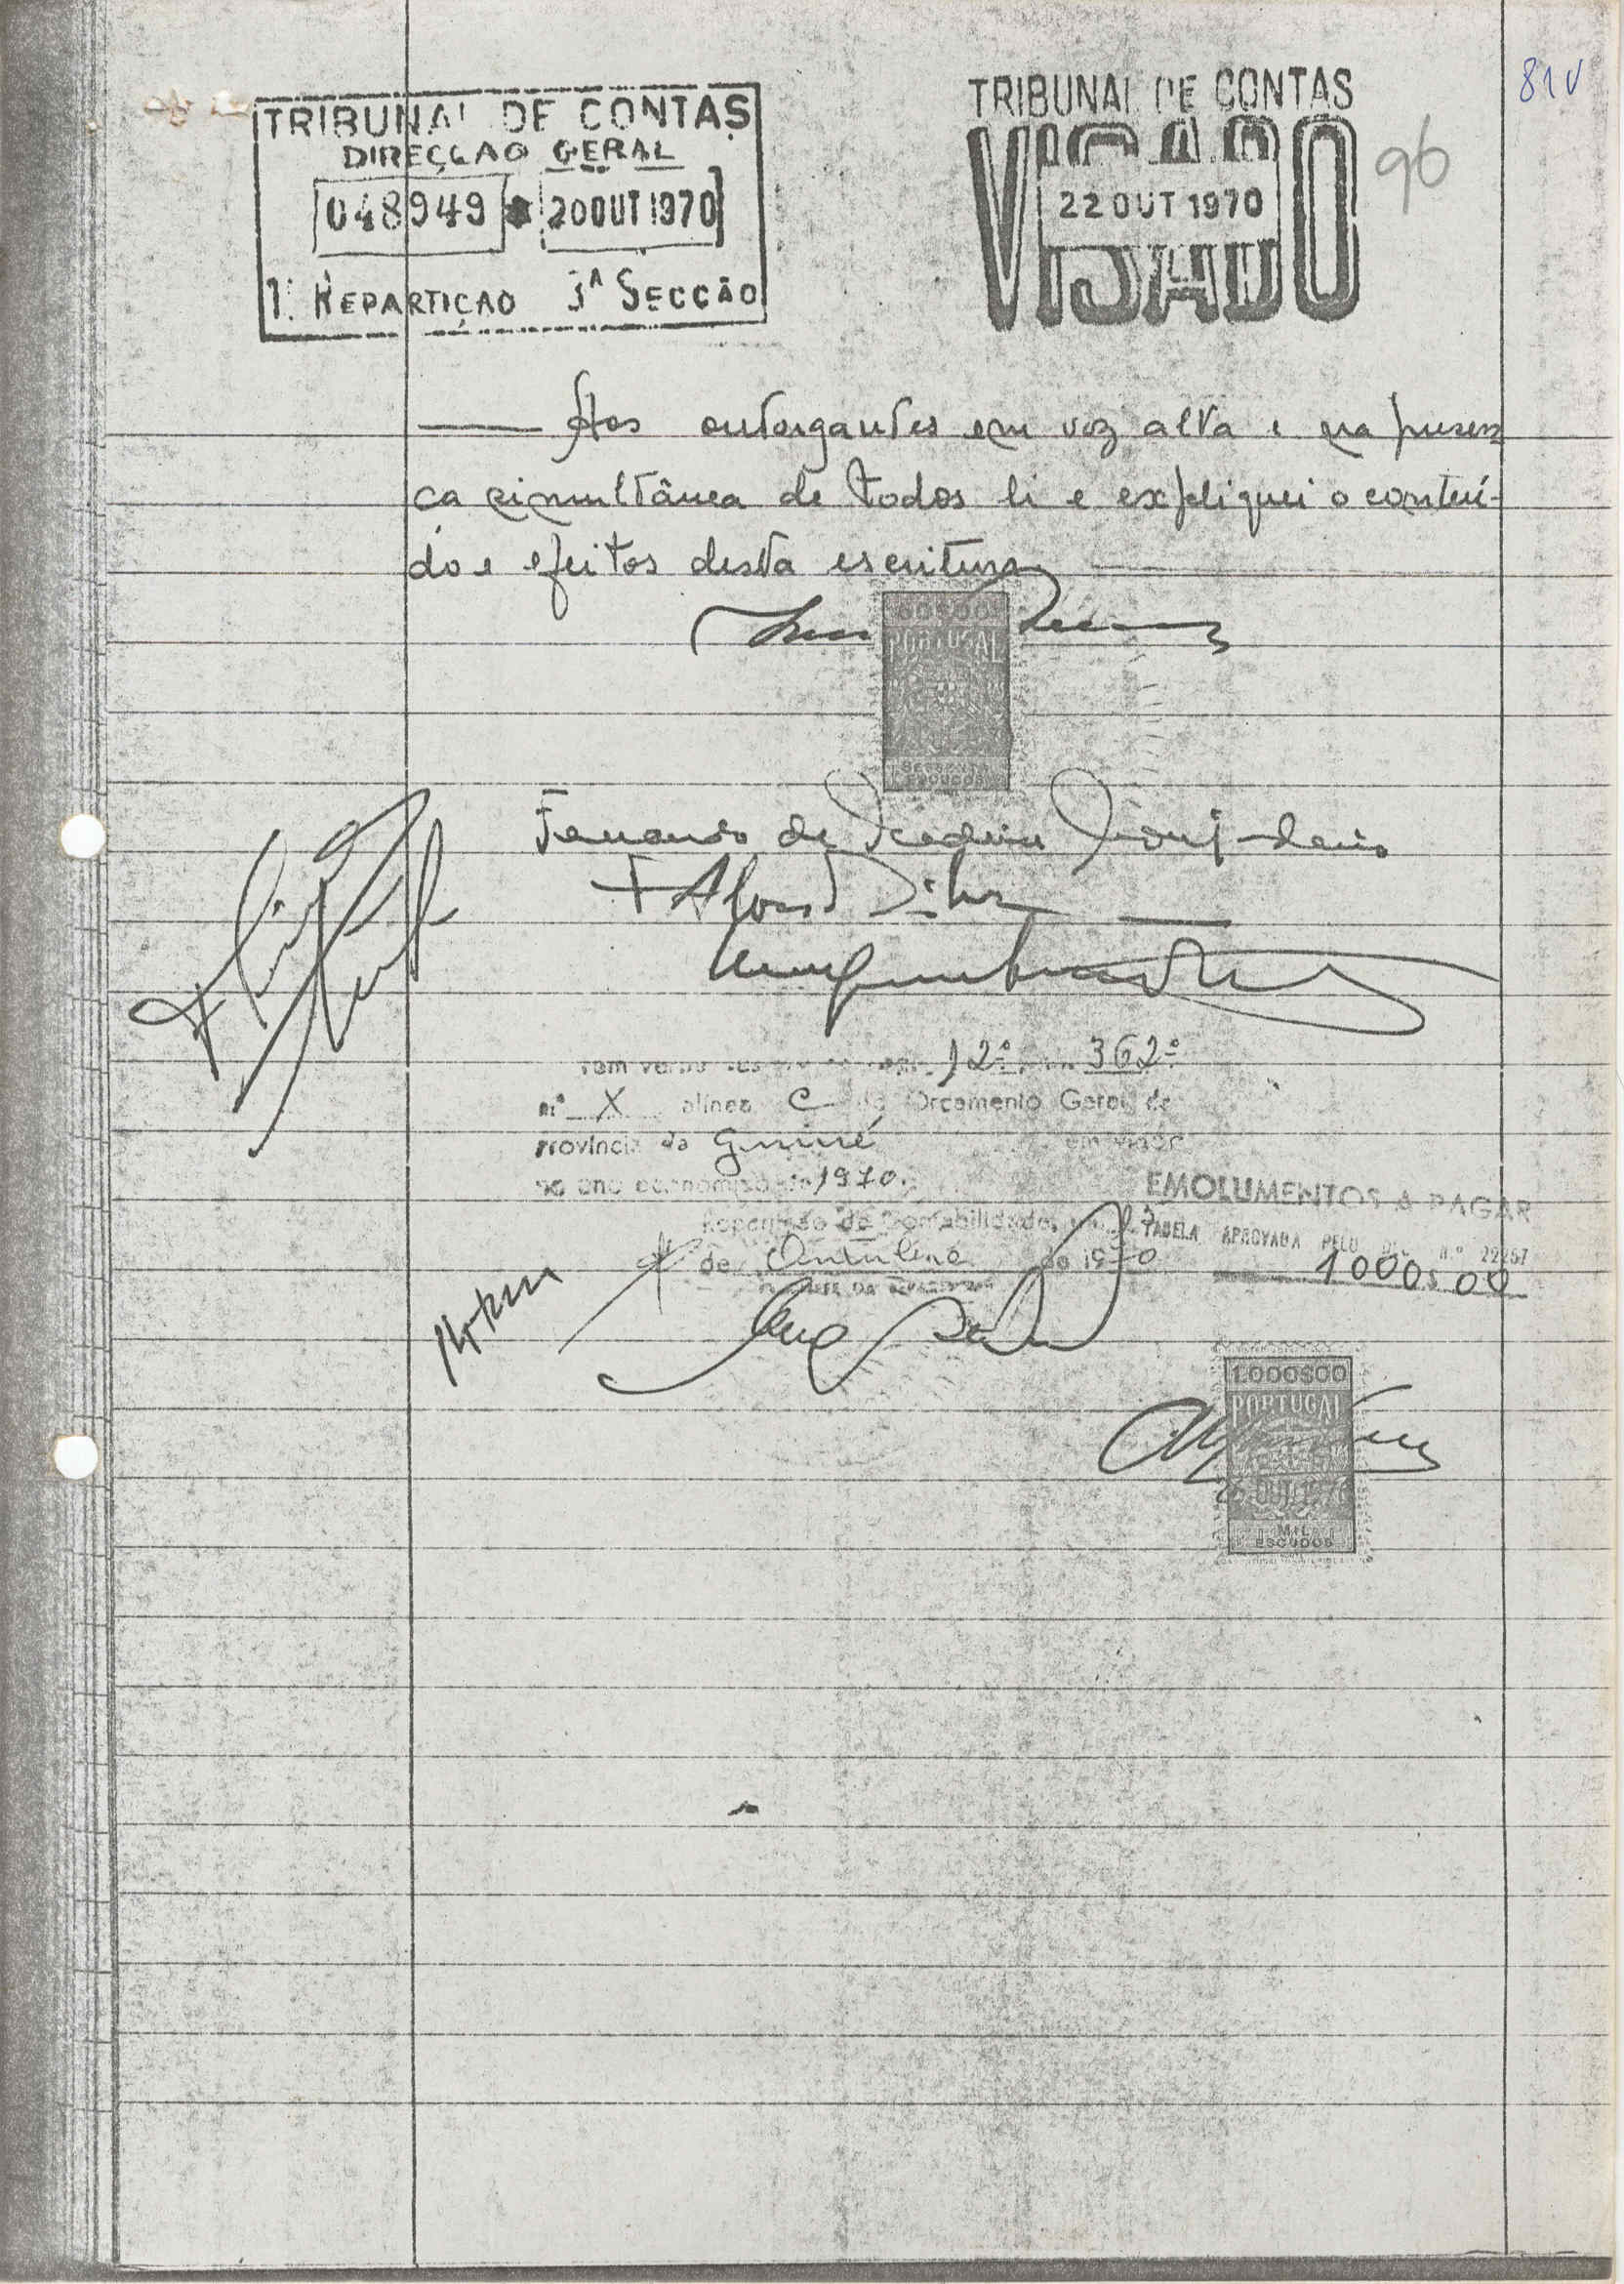 81V
TRIBUNAL DE CONTAS
DIRECÇÃO GERAL
048949 20 OUT 1970
1.ª REPARTIÇÃO 3ª SECÇÃO
TRIBUNAL DE CONTAS
VISADO
22 OUT 1970
96
Aos outorgantes em voz alta e na presen
ça simultânea de todos li e expliquei o conteú-
do e efeitos desta escritura
60$00
PORTUGAL
SESSENTA
ESCUDOS
Fernando de
Afonso Silva
Tem verba 12º 362º
nº X alínea C do Orçamento Geral da
Província da Guiné em vigor
no ano económico de 1970.
Repartição de Contabilidade,
de de 1970
EMOLUMENTOS A PAGAR
TABELA APROVADA PELO DEC. N.º 22257
1000$00
1.000$00
PORTUGAL
MIL
ESCUDOS